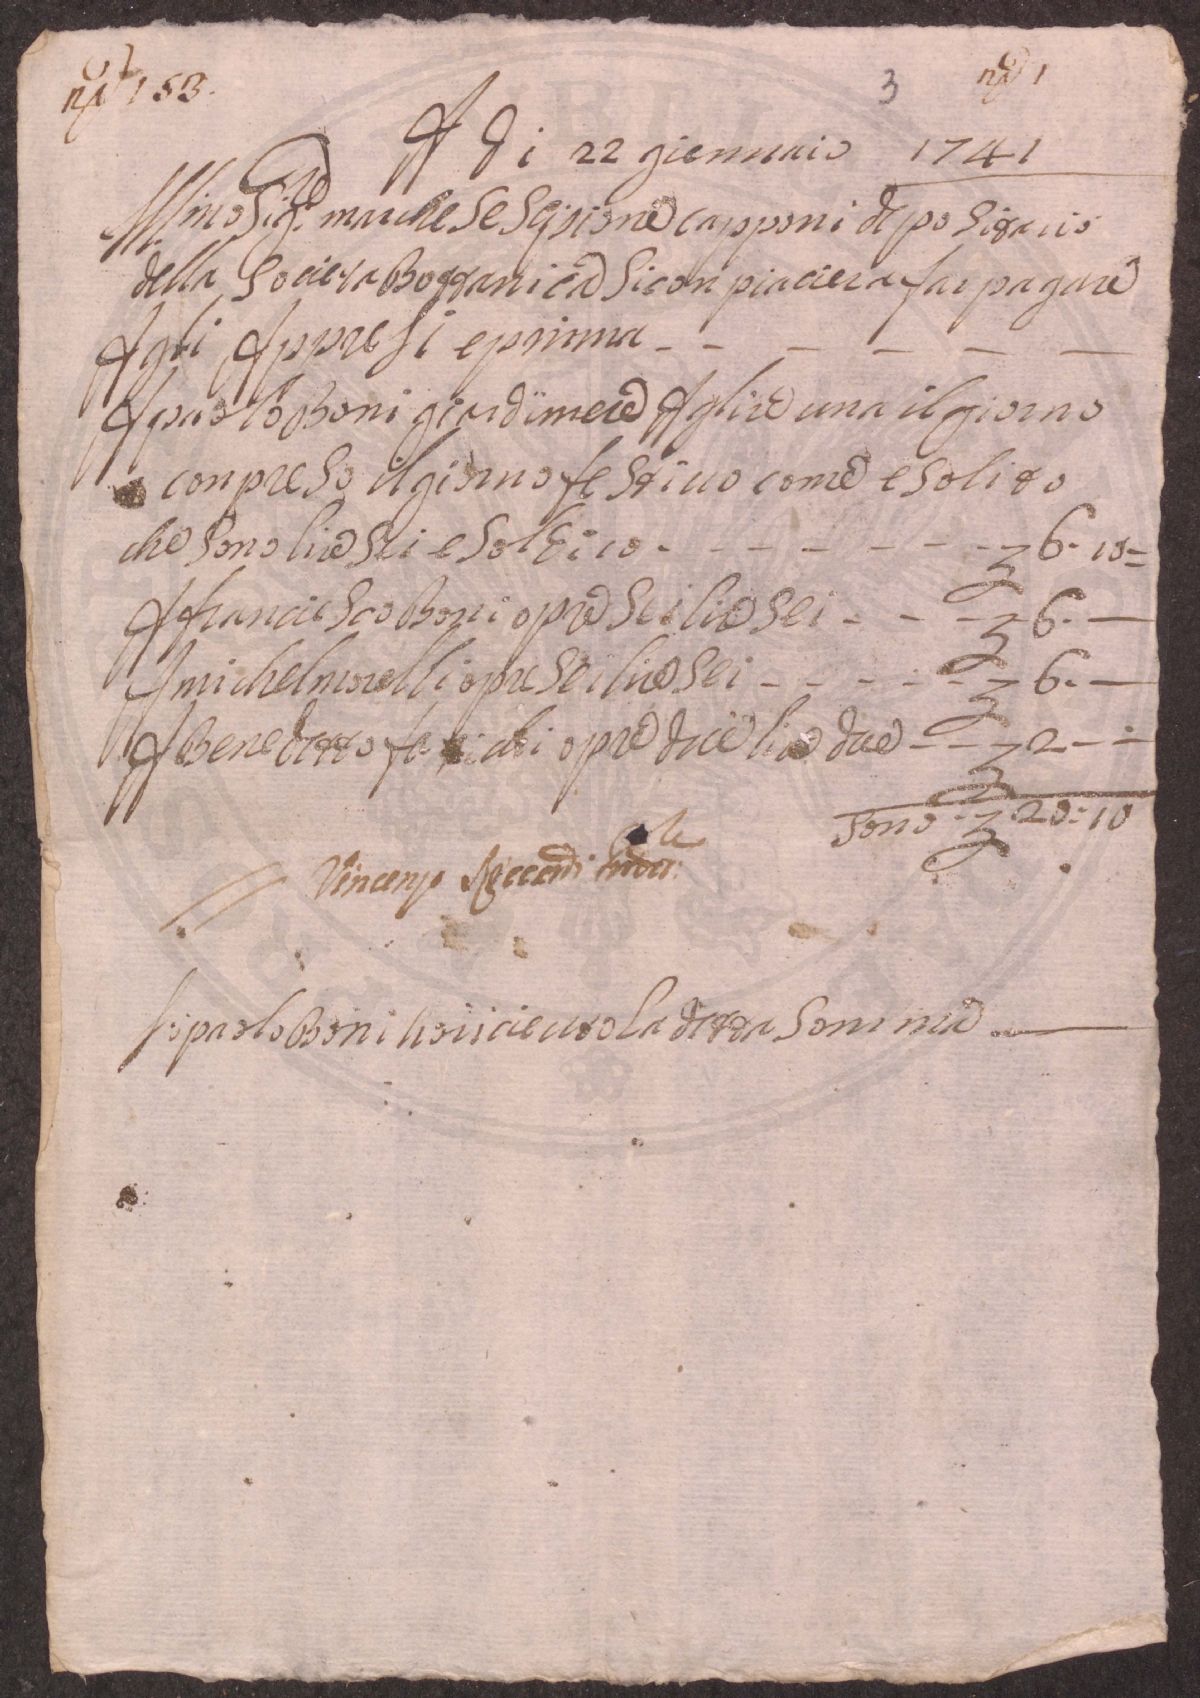 no 153.
3
no 1
A di 22 giennaio 1741
Illmo Sigre marchese Scipione capponi depositario
della Società Bottanica Si conpiacierà far pagare
Agli Appresi e prima
A paolo Boni giardiniere A lire una il giorno
conpreso il giorno festiuo come e solito
che sono lire sei e soldi 10 6. 10
A franciesco Boni opre sei lire sei 6.
A michel morelli opre sei lire sei 6.
A Benedetto opre due lire due 2
Sono 20: 10
Vincenzo
Io paolo Boni ho riceuto la detta Somma